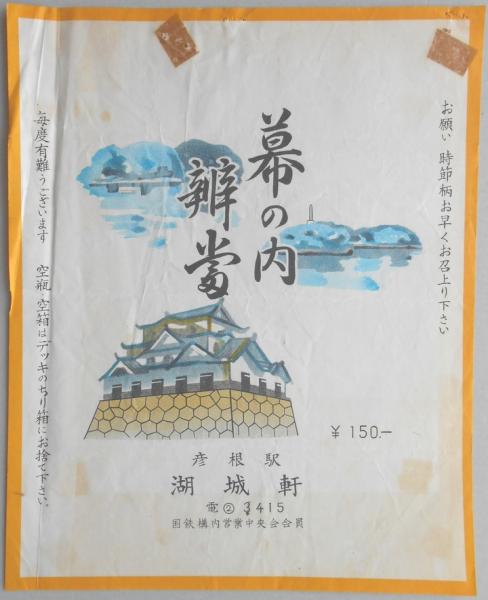 お願い 時節柄お早くお召上り下さい
幕の内
辨當
毎度有難うございます 空瓶・空箱はデッキのちり箱にお捨て下さい。
¥150.—
彦根駅
湖城軒
電②3415
国鉄構内営業中央会会員